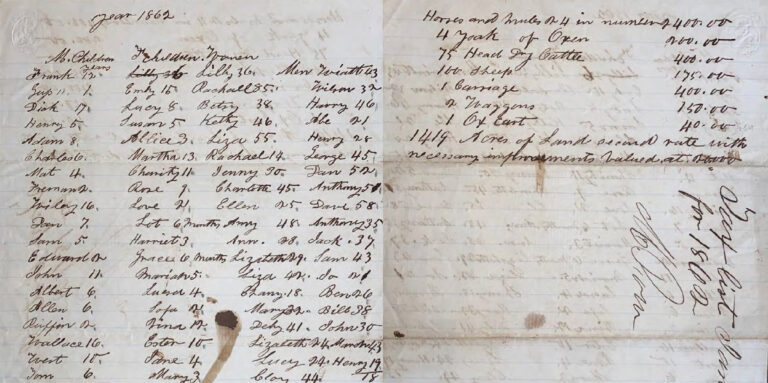 year 1862
M. Children F Children Women
years
Frank 12. Lilly 36 Lilly 36. Men Wiatt 63
1. Emly 15 Rachall 35. Wilson 32
Dick 17. Lucy 8 Betsy 38. Harry 46
Henry 5. Susan 5 Kitty 46 Abe 21
Adam 8. Allice 3. Liza 55. Henry 28
Charles 6. Martha 13 Rachael 14. George 45
Mat 4 Charity 11. Jenny 30. Dan 52
Freeman 2. Rose 9. Charlotte 45 Anthony 50
Wiley 16. Love 21 Ellen 25. Dave 58
7. Lot 6 months Amy 48. Anthony 35
Sam 5. Harriet 3. Ann. 28. Jack. 37
Edward 2 Grace 6 months Lizabeth 29. Sam 43
John 11. Mariah 5. Liza 42. 21
Albert 6. 4. Chany 18. Ben 26
Allen 6. 2 Mary 32. Bill 38
Ruffin 2. Vina 12. 41. John 30
Wallace 16. Ester 10. Lizabeth 24 43
West 10. Jane 4 Lucy 24. Henry 19
Tom 6. Mary 3 Cloy 44. 18
Horses and mules 24 in number 2400.00
4 Yoak of Oxen 200.00
75 Head Dry Cattle 400.00
100 Sheep 175.00
1 Carriage 400.00
2 Waggons 150.00
1 Ox Cart 40.00
1419 Acres of Land second rate with
necessary improvements valued at
Tax list
for 1862